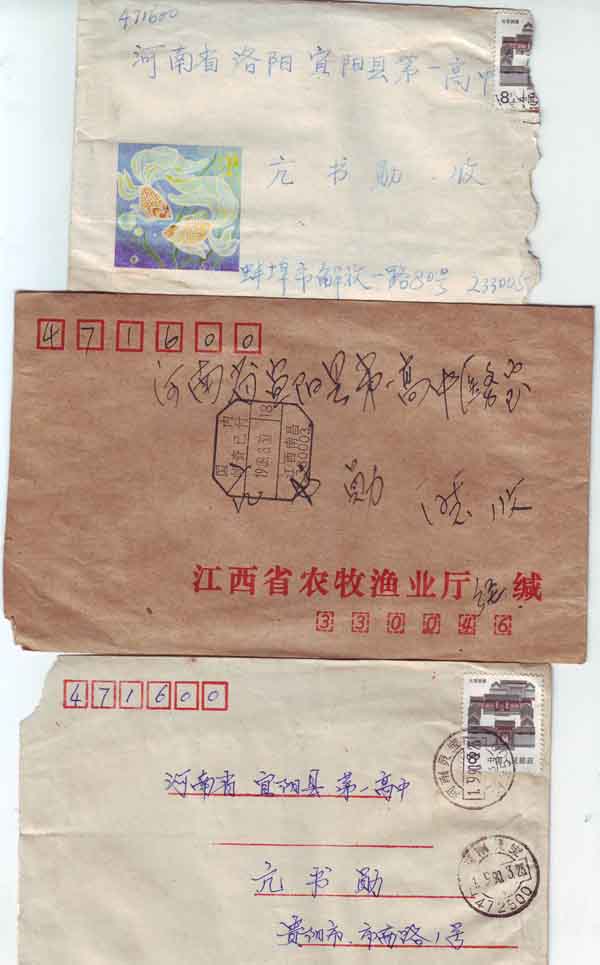 471600
河南省洛阳宜阳县第一高中
8
亢书勋 收
蚌埠市解放一路80号 233005
471600
河南省宜阳县第一高中
国内
邮资已付
江西南昌
330003
亢书勋 收
江西省农牧渔业厅 缄
330046
471600
河南省宜阳县第一高中
472500
亢书勋
贵阳市.市南路1号